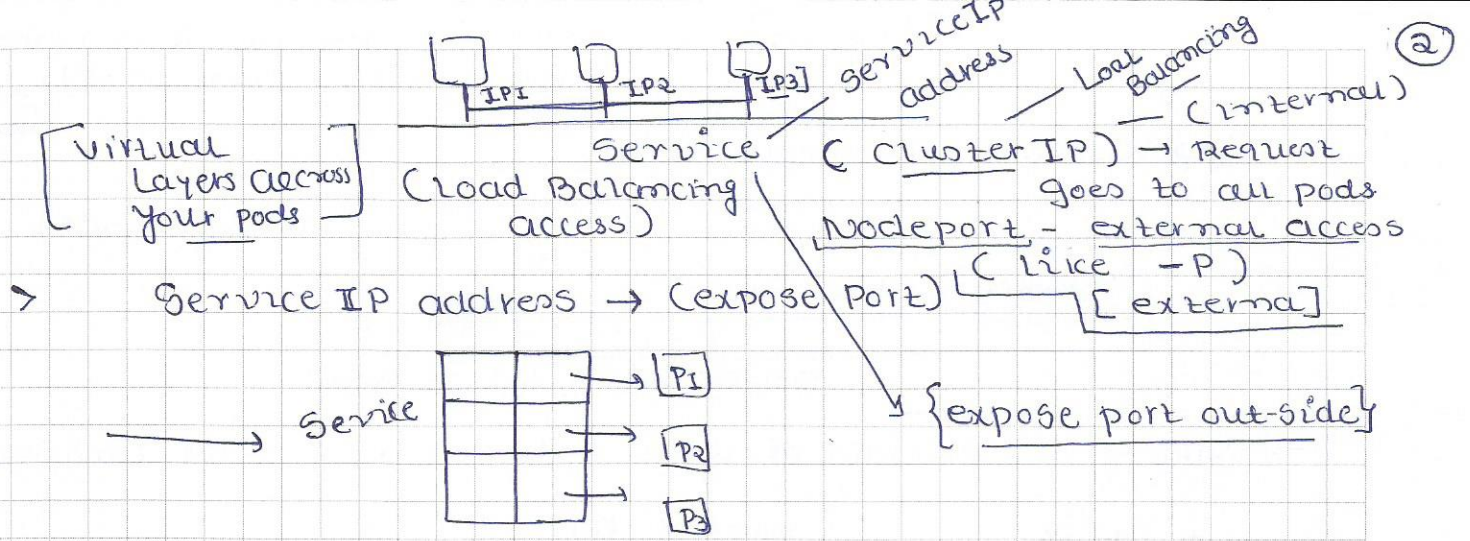 ②
IP1 IP2 IP3]
service IP address
Load Balancing
(internal)
[virtual
Layers accross
your pods]
Service
(Load Balancing
access)
(cluster IP) → Request
goes to all pods
Nodeport - external access
(like -P)
[externa]
> Service IP address → (expose Port)
{expose port out-side}
→ Sevice
→ P1
→ P2
→ P3